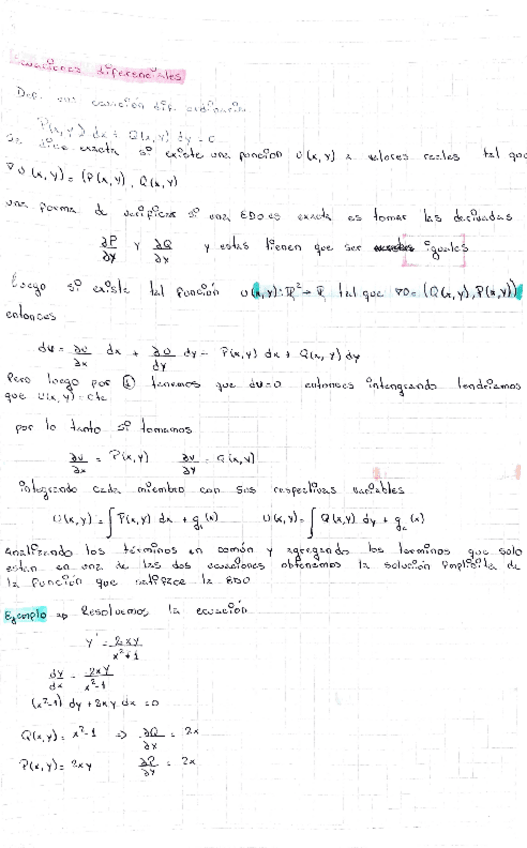 Ecuaciones diferenciales
Def. una ecuación dif. ordinaria
P(x,y) dx + Q(x,y) dy = c
Se dice exacta si existe una función U(x,y) a valores reales tal que
∇U(x,y) = (P(x,y), Q(x,y)
una forma de verificar si una EDO es exacta es tomar las derivadas
∂P/∂y y ∂Q/∂x y estas tienen que ser iguales
luego si existe tal función U(x,y): ℝ² → ℝ tal que ∇U = (Q(x,y), P(x,y))
entonces
dU = ∂U/∂x dx + ∂U/∂y dy = P(x,y) dx + Q(x,y) dy
Pero luego por ① tenemos que dU=0 entonces integrando tendríamos
que U(x,y) = cte
por lo tanto si tomamos
∂U/∂x = P(x,y) ∂U/∂y = Q(x,y)
integrando cada miembro con sus respectivas variables
U(x,y) = ∫ P(x,y) dx + g₁(x) U(x,y) = ∫ Q(x,y) dy + g₂(x)
Analizando los términos en común y agregando los terminos que solo
estan en una de las dos ecuaciones obtenemos la solución implícita de
la función que satiface la EDO
Ejemplo ⇒ Resolvemos la ecuación
y' = 2xy/x²+1
dy/dx = 2xy/x²-1
(x²-1) dy + 2xy dx = 0
Q(x,y) = x²-1 ⇒ ∂Q/∂x = 2x
P(x,y) = 2xy ∂P/∂y = 2x